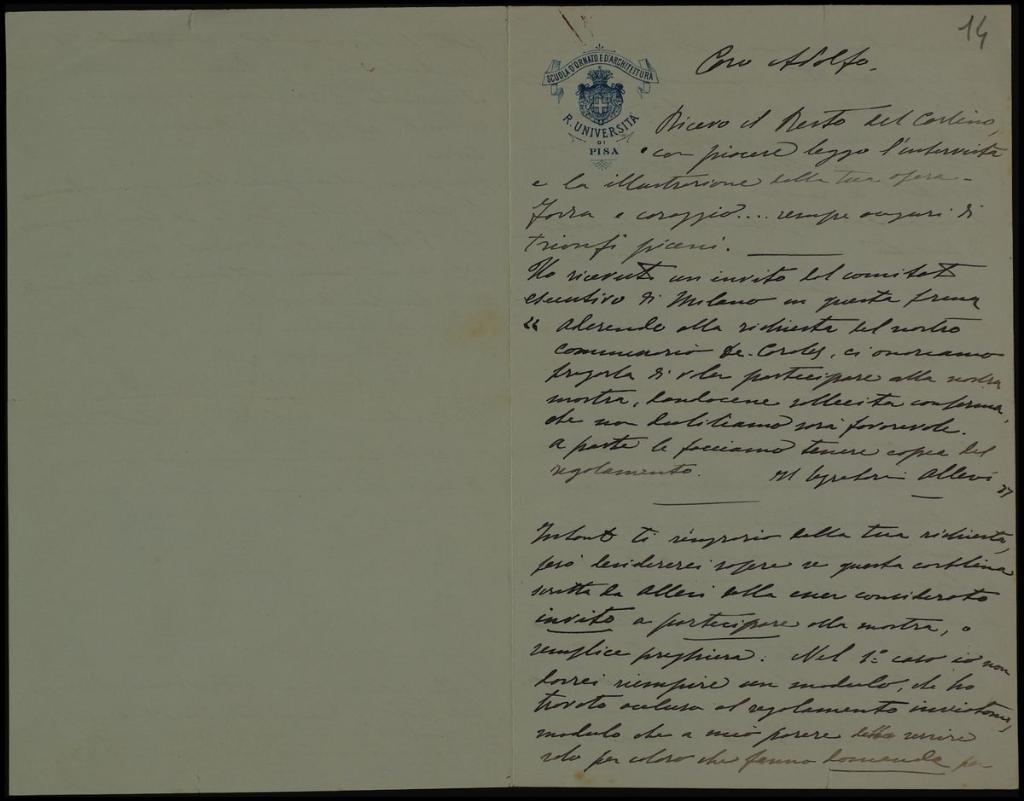 14
SCUOLA D'ORNATO E D'ARCHITETTURA
R. UNIVERSITÀ
DI
PISA
Caro Adolfo,
Ricevo il Resto del Carlino,
e con piacere leggo l'intervista
e la illustrazione della tua opera -
Forza e coraggio.... sempre auguri di
trionfi piceni.
Ho ricevuto un invito del comitato
esecutivo di Milano in questa forma
" Aderendo alla richiesta del nostro
commissario De-Carolis, ci onoriamo
pregarla di voler partecipare alla nostra
mostra, dandocene sollecita conferma,
che non dubitiamo sarà favorevole.
a parte le facciamo tenere copia del
regolamento. Il Segretario Allevi "
Intanto ti ringrazio della tua richiesta,
però desidererei sapere se questa cartolina
scritta da Allevi debba esser considerata
invito a partecipare alla mostra, o
semplice preghiera. Nel 1º caso io non
dovrei riempire un modulo, che ho
trovato accluso al regolamento inviatomi,
modulo che a mio parere debba servire
solo per coloro che fanno domanda per